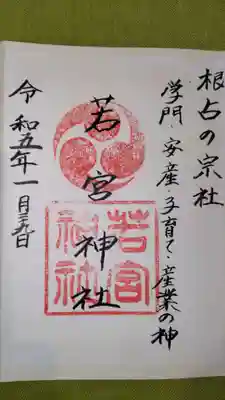 根占の宗社
学門・安産・子育て・産業の神
若宮神社
若宮
神社
令和五年一月二九日